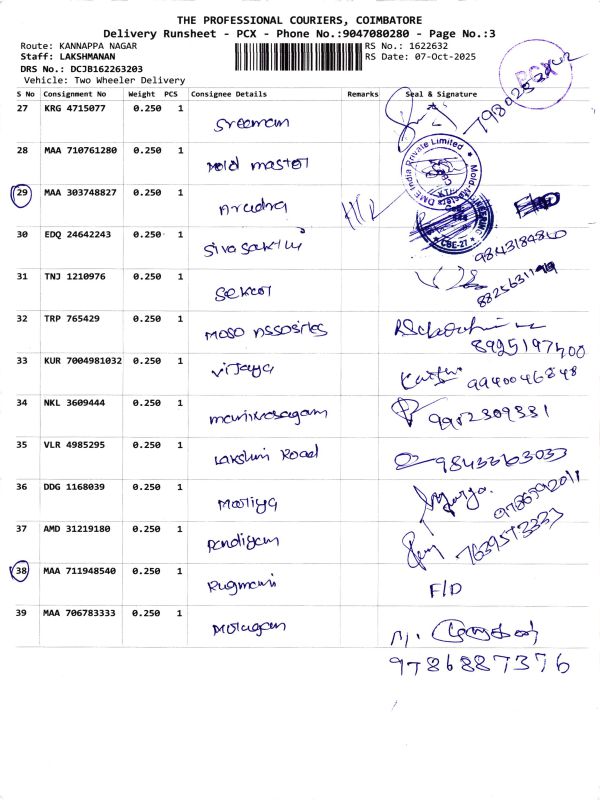 THE PROFESSIONAL COURIERS, COIMBATORE
Delivery Runsheet - PCX - Phone No.:9047080280 - Page No.:3
Route: KANNAPPA NAGAR RS No.: 1622632
Staff: LAKSHMANAN RS Date: 07-Oct-2025
DRS No.: DCJB162263203
Vehicle: Two Wheeler Delivery
PCX
S No Consignment No Weight PCS Consignee Details Remarks Seal & Signature
27 KRG 4715077 0.250 1 Sreeman
28 MAA 710761280 0.250 1 Mold master
Mold-Masters DME India Private Limited
29 MAA 303748827 0.250 1 Aradha
CBE-27
30 EDQ 24642243 0.250 1 Sivasakthi 9843184860
31 TNJ 1210976 0.250 1 Sekar
32 TRP 765429 0.250 1 8925197400
33 KUR 7004981032 0.250 1 Vijaya 9940046848
34 NKL 3609444 0.250 1 manikvasagam 9952309331
35 VLR 4985295 0.250 1 Lakshmi Road 9843363033
36 DDG 1168039 0.250 1
37 AMD 31219180 0.250 1 Pandiyan 7639573333
38 MAA 711948540 0.250 1 Rugmani F/D
39 MAA 706783333 0.250 1 Molagan
9786887376